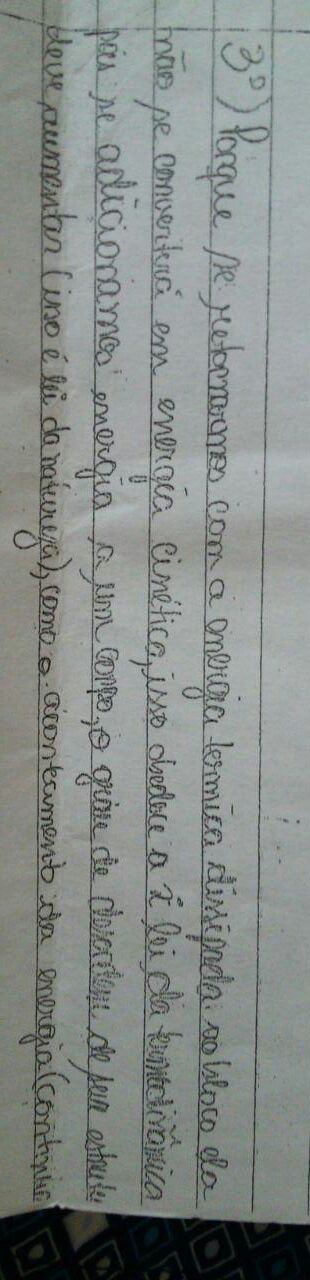 3º) Porque se retornarmos com a energia termica dissipada no bloco ela
não se converterá em energia cinética, isso obedece a 2ª lei da termodinâmica
pois se adicionamos energia a um corpo, o grau de desordem de seu
deve aumentar (isso é lei da natureza), como o acontecimento da energia (contrário